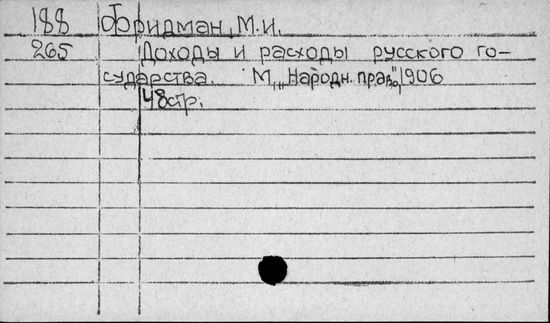 188 Фридман, М.И.
265 Доходы и расходы русского го-
сударства. М., "Народн. право", 1906
48стр.